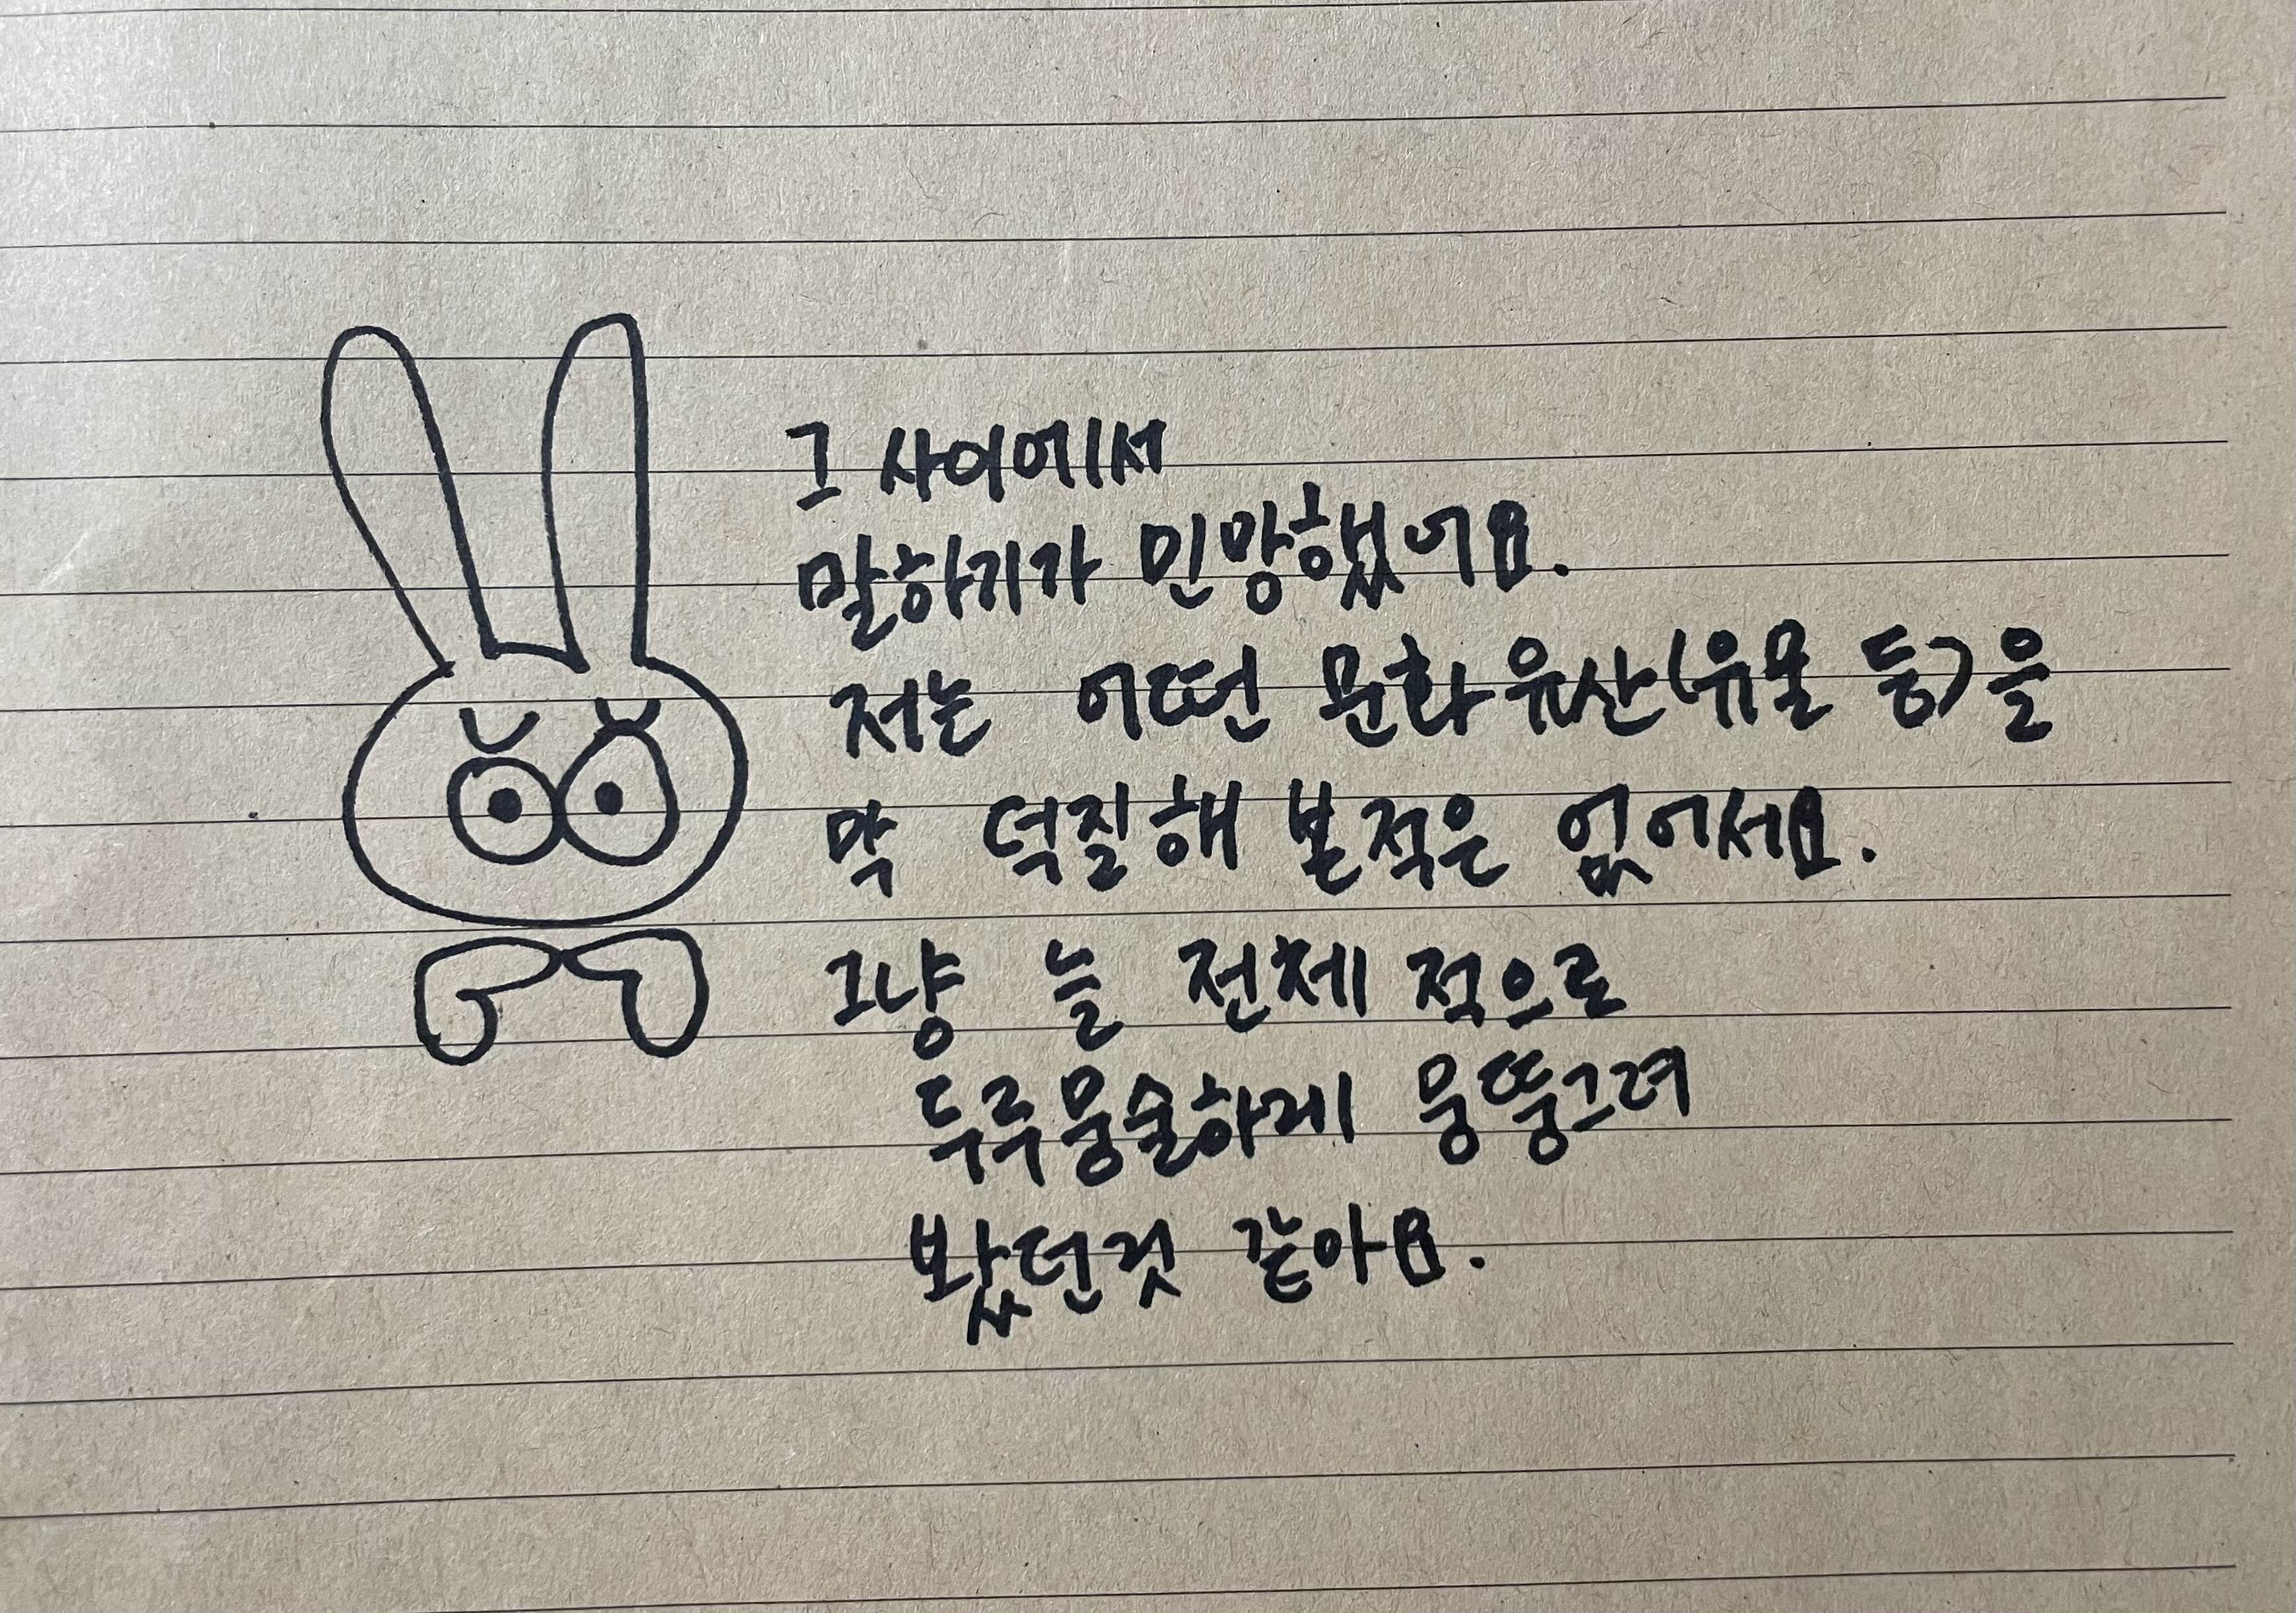 그 사이에서
말하기가 민망했어요.
저는 어떤 문화유산(유물 등)을
막 덕질해 본적은 없어서요.
그냥 늘 전체적으로
두루뭉술하게 뭉뚱그려
봤던것 같아요.